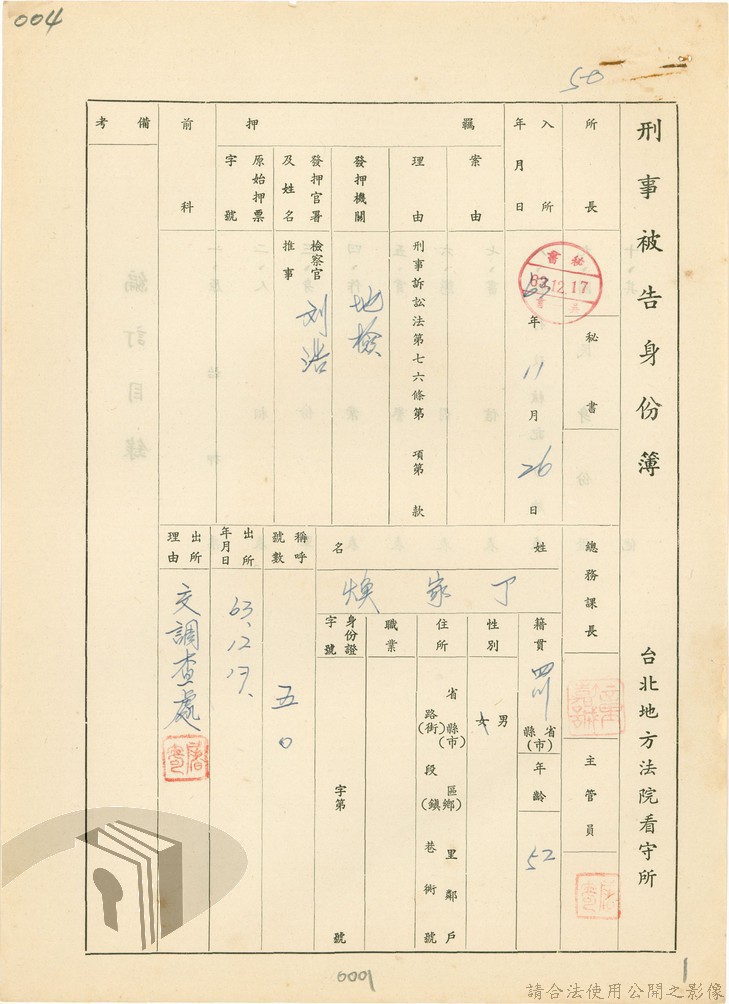 004
50
刑事被告身份簿
台北地方法院看守所
所長
秘書
總務課長
主管員
入所年月日
秘書
63.12.17
63年11月26日
羈押
案由
理由
刑事訴訟法第七六條第 項第 款
發押機關
地檢
發押官署及姓名
檢察官
推事
刘浩
原始押票字號
前科
備考
姓名
丁家煥
籍貫
四川省縣(市)
年齡
52
性別
男女
住所
省縣(市)區鄉(鎮)里鄰戶
路(街)段巷衖號
職業
身份證字號
字第 號
稱呼號數
五0
出所年月日
63.12.17.
出所理由
交調查處
編訂目錄
0001
1
請合法使用公開之影像